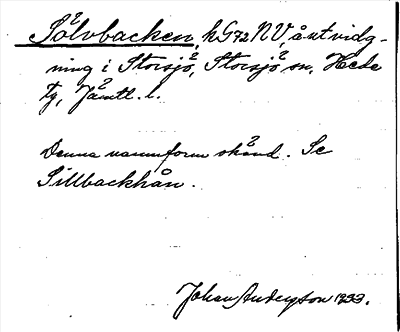 Sålvbacken, kG72NV, åutvidg-
ning i Storsjö, Storsjö sn, Hede
tg, Jämtl. l.
Denna namnform okänd. Se
Sillbackhån.
Johan Anderson 1933.